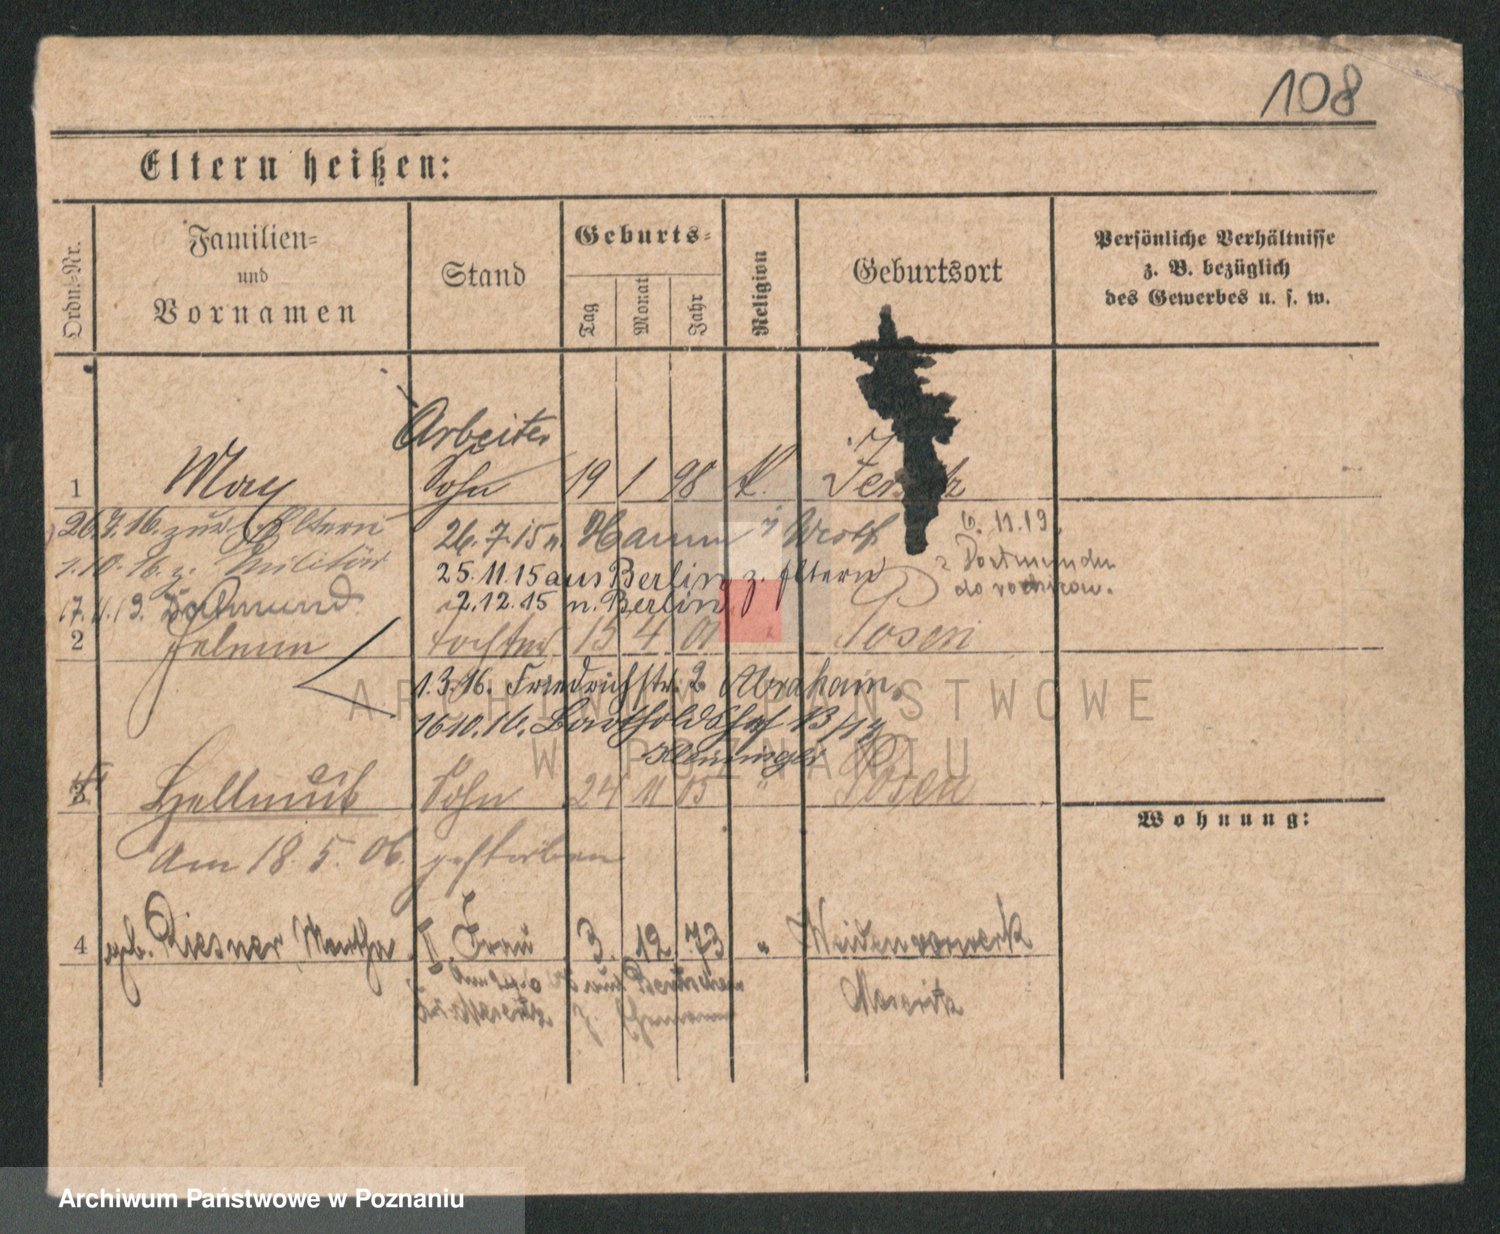 108
Eltern heißen:
Ordn.-Nr.
Familien-
und
Vornamen
Stand
Geburts-
Tag
Monat
Jahr
Religion
Geburtsort
Persönliche Verhältnisse
z. B. bezüglich
des Gewerbes u. s. w.
Arbeiter
1 Max Sohn 19 1 98 K.
26.7.16. zur Eltern 26.7.15 n. Hamm i/ Westf. 6.11.19.
1.10.16. z. Militär 25.11.15 aus Berlin z. Eltern
17.1.19. Dortmund 2.12.15 n. Berlin
2 Tochter 15 4 01 " Posen
1.3.16. Friedrichstr. 2 Abraham.
ARCHIWUM PAŃSTWOWE
16.10.16. Bartholdshof 13/14
W POZNANIU
3 Hellmut Sohn 24 11 05 " Posen
Am 18.5.06. gestorben
Wohnung:
4 geb. Riesner, Martha II. Frau 3. 12. 73 " Weidenvorwerk
Meseritz
Archiwum Państwowe w Poznaniu